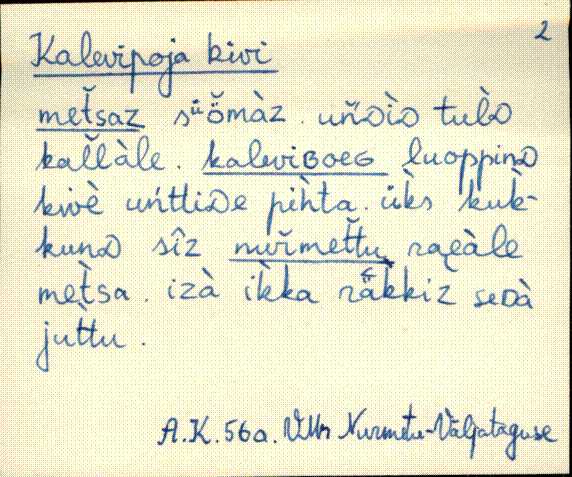 2
Kalevipoja kivi
met̆saz sü̆ömàz. uňDìD tulD̀
kall̆àle. kaleviʙoeɢ luoppinD
kivè uńttiDe pih̀ta. ük̀s kuk̀-
kunD sîz nuřmet̆tu raeàle
met̀sa. izà ik̀ka räk̀kiz seDà
jut̀tu.
A.K. 56a. VMr Nurmetu-Väljataguse